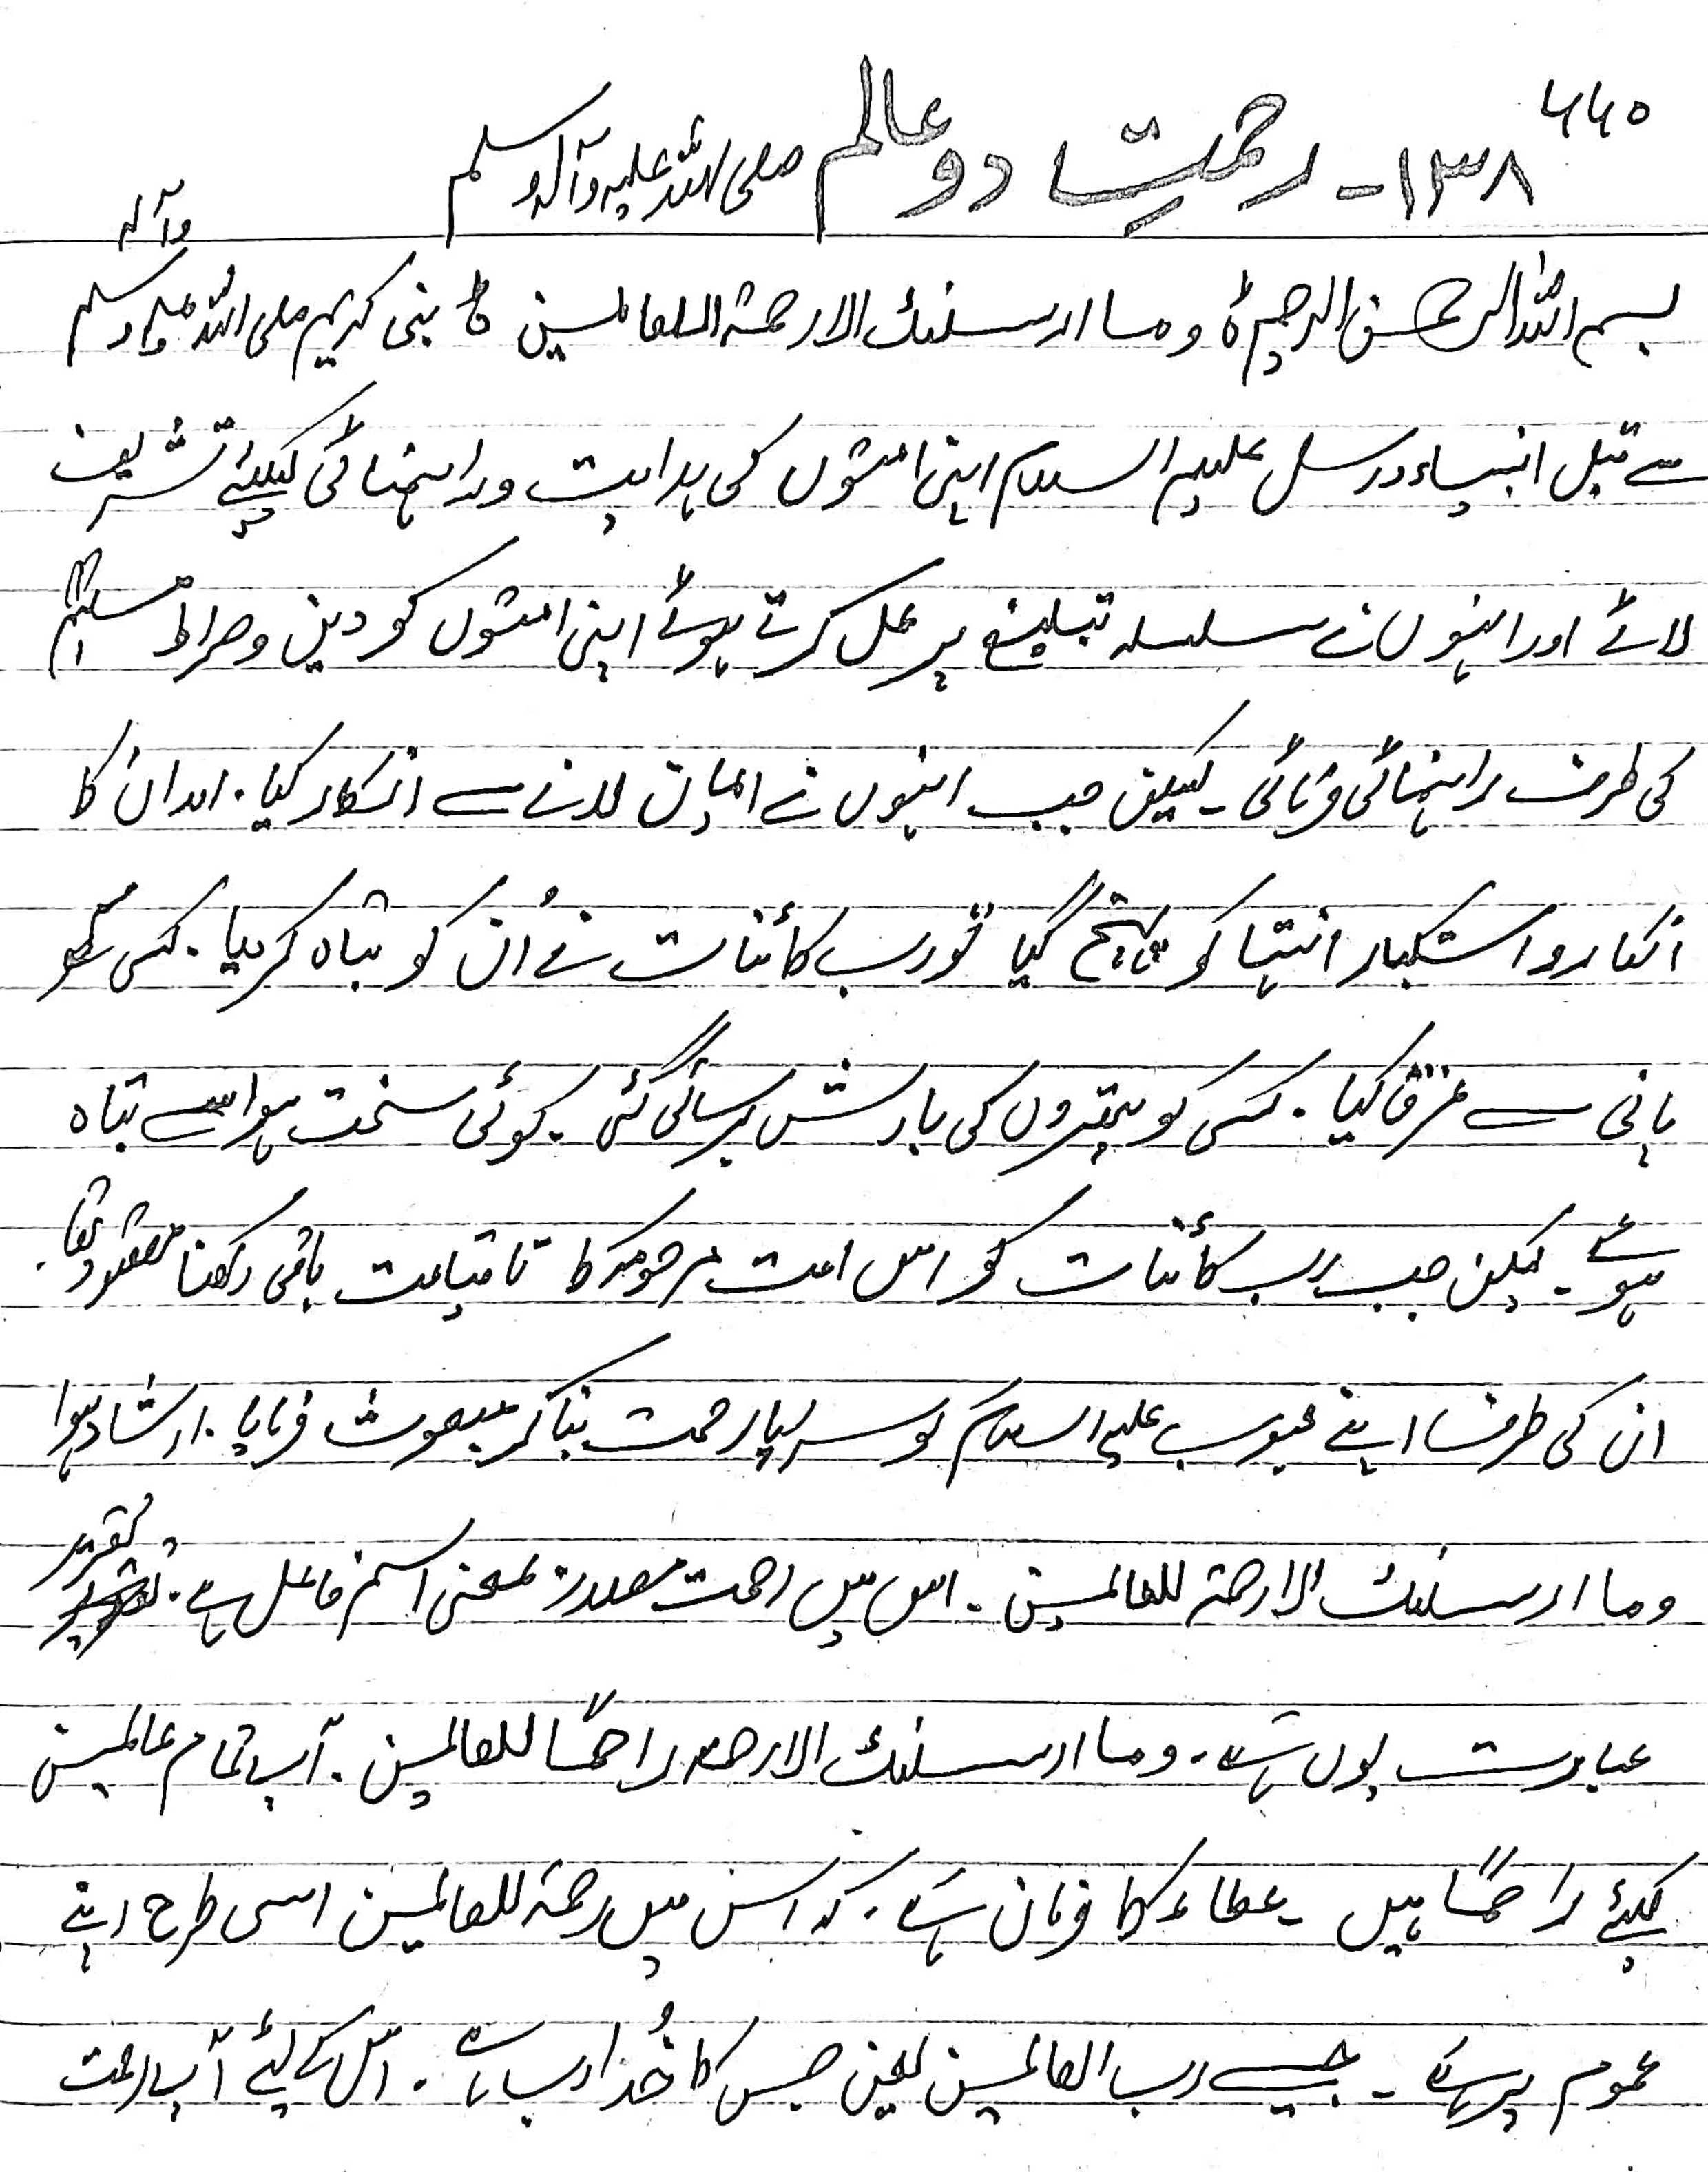 ۶۶۵
۱۳۸- رحمتِ دو عالم صلی اللہ علیہ وآلہ وسلم
وآلہ
بسم اللہ الرحمن الرحیم ہ وما ارسلنک الا رحمۃ اللعالمین ہ نبی کریم صلی اللہ علیہ وسلم
سے قبل انبیاء ورسل علیہم السلام اپنی امتوں کی ہدایت وراہنمائی کیلئے تشریف
لائے اور انہوں نے سلسلہ تبلیغ پر عمل کرتے ہوئے اپنی امتوں کو دین وصراط مستقیم
کی طرف راہنمائی فرمائی۔ لیکن جب انہوں نے ایمان لانے سے انکار کیا۔ اور ان کا
انکار و استکبار انتہا کو پہنچ گیا تو رب کائنات نے اُن کو تباہ کر دیا۔ کسی کو
پانی سے غرق کیا۔ کسی کو پتھروں کی بارش برسائی گئی۔ کوئی سخت ہوا سے تباہ
ہوئے۔ لیکن جب رب کائنات کو اس امت مرحومہ کا تا قیامت باقی رکھنا مقصود تھا۔
ان کی طرف اپنے محبوب علیہ السلام کو سراپا رحمت بنا کر مبعوث فرمایا۔ ارشاد ہوا
وما ارسلنک الا رحمۃ للعالمین۔ اس میں رحمت مصدر بمعنی اسم فاعل ہے۔ تقریر
عبارت یوں ہے۔ وما ارسلنک الا رحمہ راحمًا للعالمین۔ آپ تمام عالمین
کیلئے راحمًا ہیں۔ عطاء کا فرمان ہے۔ کہ اس میں رحمۃ للعالمین اسی طرح اپنے
عموم پر ہے۔ جیسے رب العالمین یعنی جس کا خُدا رب ہے۔ اس کے لئے آپ رحمت